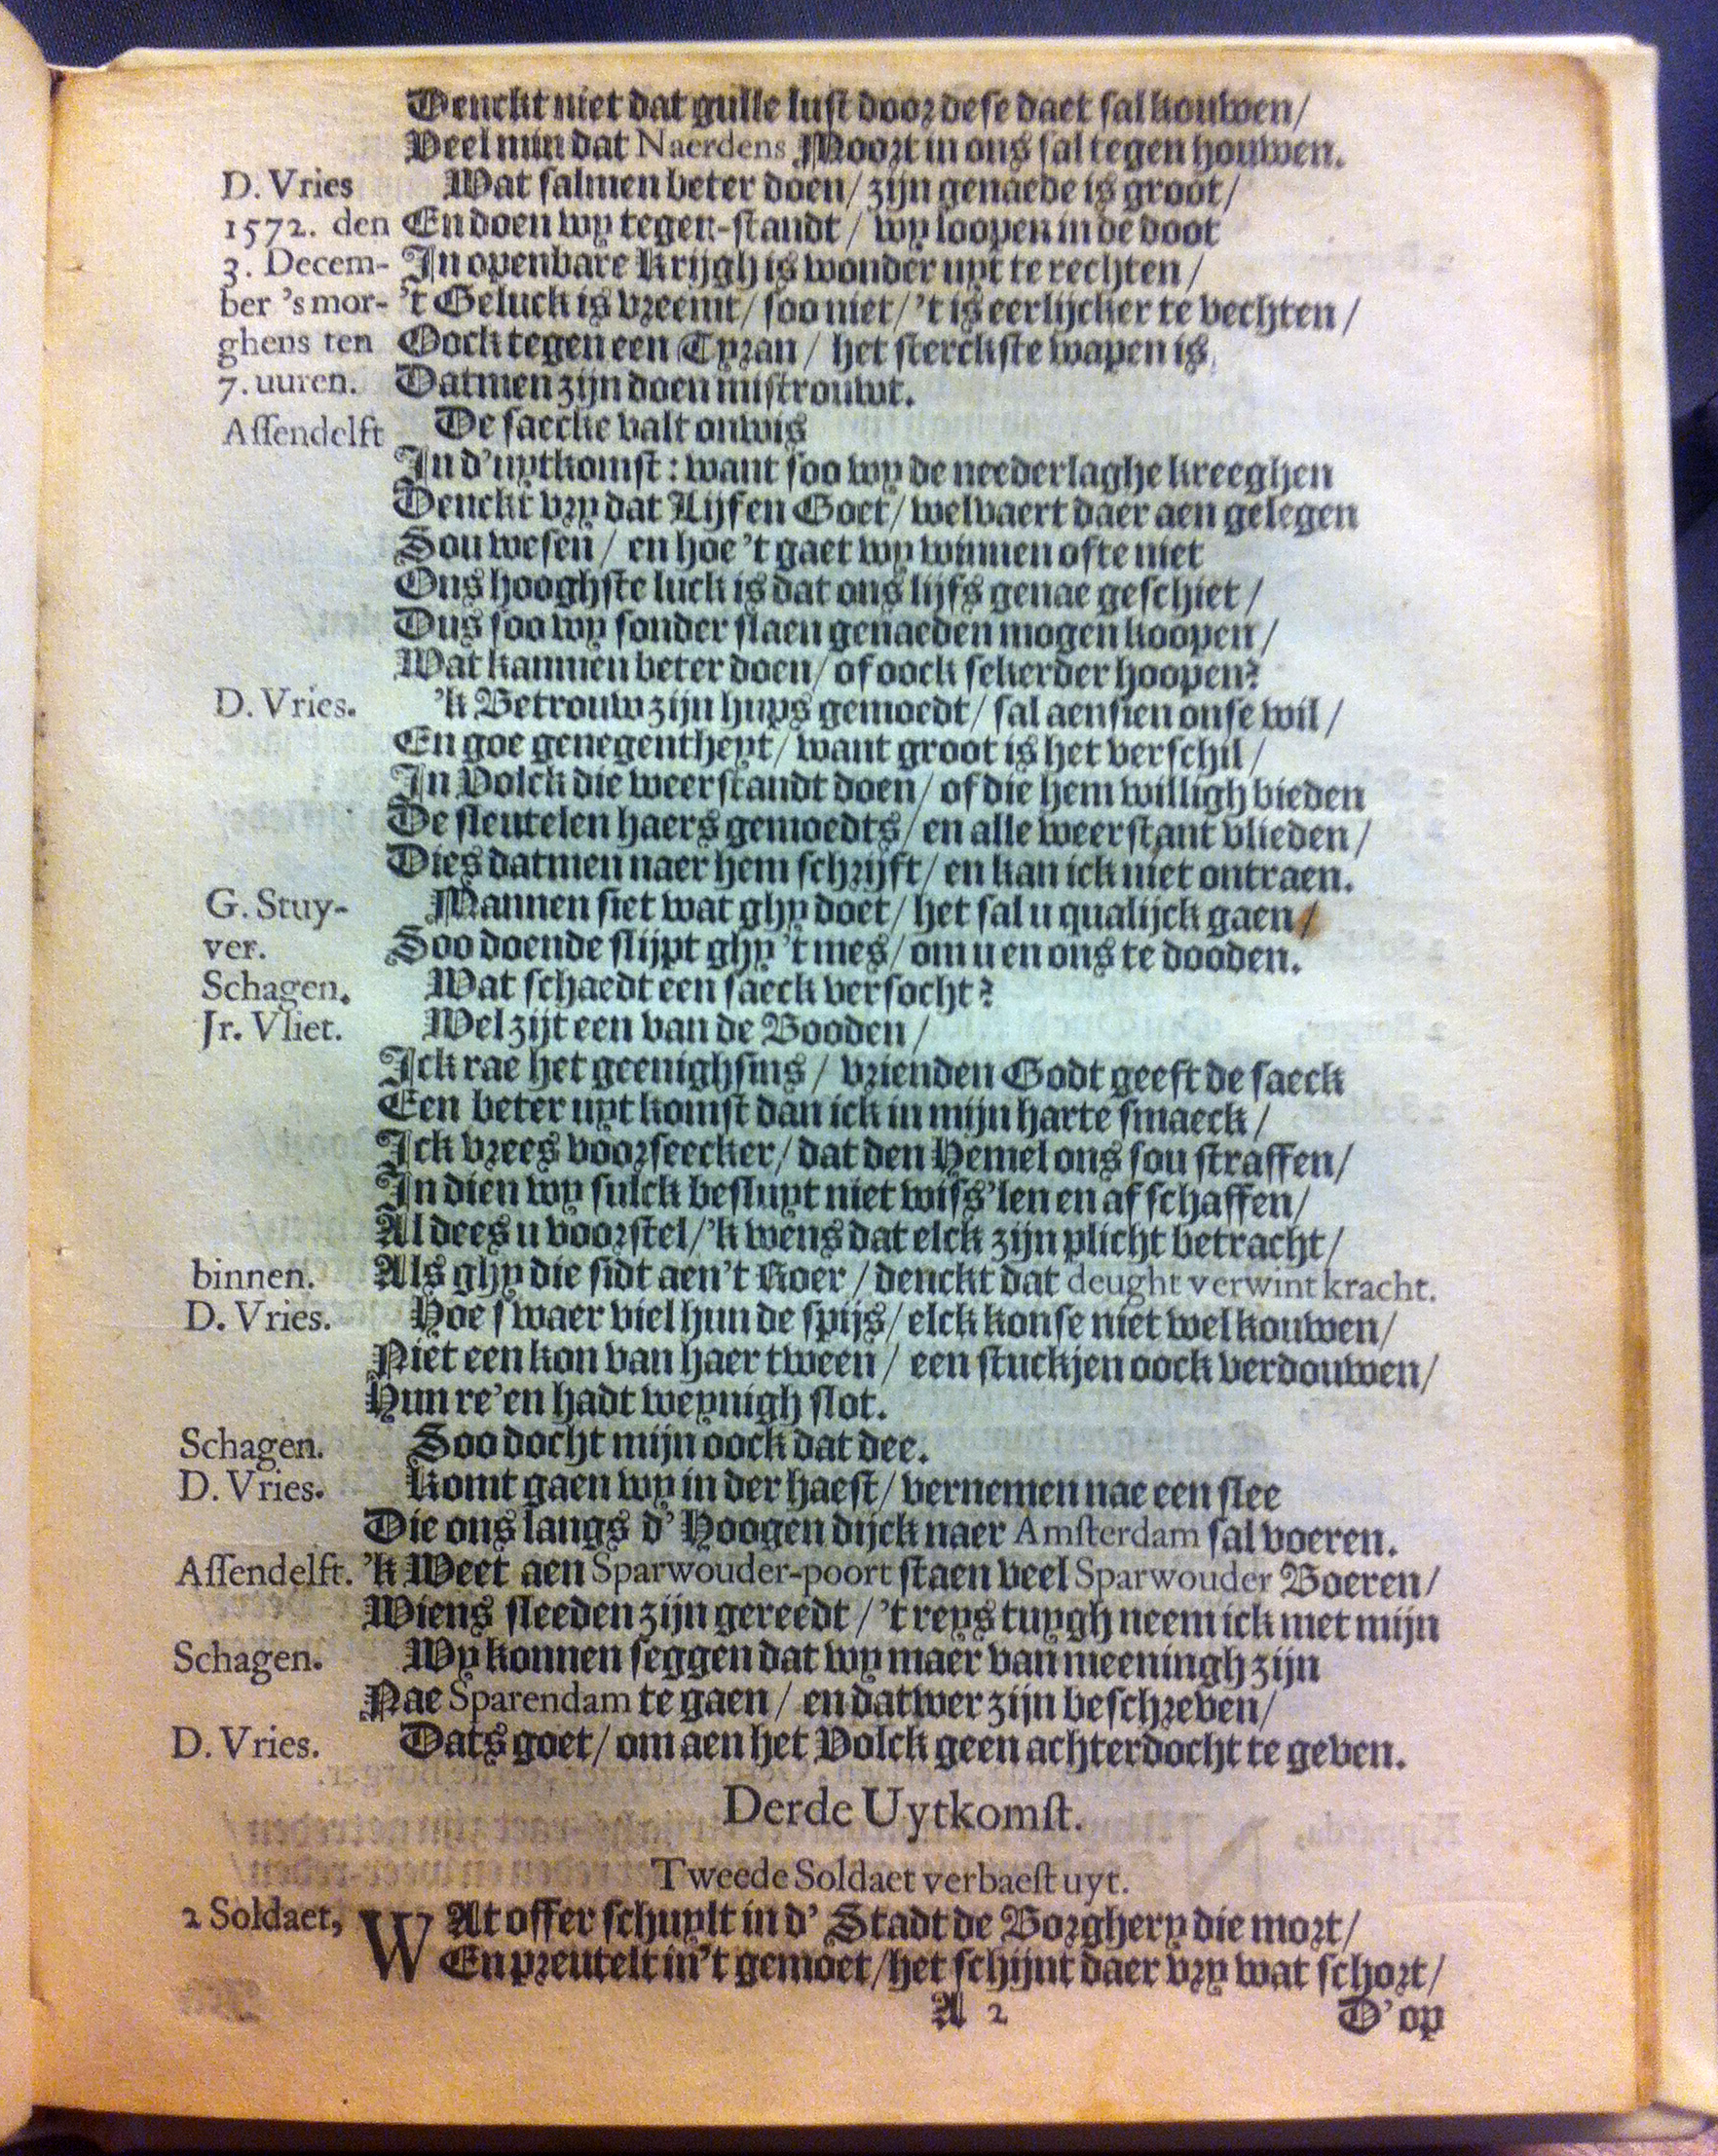 Denckt niet dat gulle lust door dese daet sal kouwen/
Veel min dat Naerdens Moort in ons sal tegen houwen.
D. Vries Wat salmen beter doen/ zijn genaede is groot/
1572. den En doen wy tegen-standt/ wy loopen in de doot
3. Decem- In openbare Krijgh is wonder uyt te rechten/
ber 's mor- 't Geluck is vreemt/ soo niet/ 't is eerlijcker te vechten/
ghens ten Oock tegen een Tyran/ het sterckste wapen is
7. uuren. Datmen zijn doen mistrouwt.
Assendelft De saecke valt onwis
In d'uytkomst: want soo wy de neederlaghe kreeghen
Denckt vry dat Lijf en Goet/ welvaert daer aen gelegen
Sou wesen/ en hoe 't gaet wy winnen ofte niet
Ons hooghste luck is dat ons lijfs genae geschiet/
Dus soo wy sonder slaen genaeden mogen koopen/
Wat kanmen beter doen/ of oock sekerder hoopen?
D. Vries. 'k Betrouw zijn hups gemoedt/ sal aensien onse wil/
En goe genegentheyt/ want groot is het verschil/
In Volck die weerstandt doen/ of die hem willigh bieden
De sleutelen haers gemoedts/ en alle weerstant vlieden/
Dies datmen naer hem schrijft/ en kan ick niet ontraen.
G. Stuy- Mannen siet wat ghy doet/ het sal u qualijck gaen/
ver. Soo doende slijpt ghy 't mes/ om u en ons te dooden.
Schagen. Wat schaedt een saeck versocht?
Jr. Vliet. Wel zijt een van de Booden/
Ick rae het geenighsins/ vrienden Godt geeft de saeck
Een beter uytkomst dan ick in mijn harte smaeck/
Ick vrees voorseecker/ dat den Hemel ons sou straffen/
Indien wy sulck besluyt niet wiss'len en af schaffen/
Al dees u voorstel/ 'k wens dat elck zijn plicht betracht/
binnen. Als ghy die sidt aen't Roer/ denckt dat deught verwint kracht.
D. Vries. Hoe swaer viel hun de spijs/ elck konse niet wel kouwen/
Niet een kon van haer tween/ een stuckjen oock verdouwen/
Hun re'en hadt weynigh slot.
Schagen. Soo docht mijn oock dat dee.
D. Vries. Komt gaen wy in der haest/ vernemen nae een slee
Die ons langs d' Hoogen dijck naer Amsterdam sal voeren.
Assendelft. 'k Weet aen Sparwouder-poort staen veel Sparwouder Boeren/
Wiens sleeden zijn gereedt/ 't reys tuygh neem ick met mijn
Schagen. Wy konnen seggen dat wy maer van meeningh zijn
Nae Sparendam te gaen/ en datwer zijn beschreven/
D. Vries. Dats goet/ om aen het Volck geen achterdocht te geven.
Derde Uytkomst.
Tweede Soldaet verbaest uyt.
2 Soldaet, WAt offer schuylt in d' Stadt de Borghery die mort/
En preutelt in't gemoet/ het schijnt daer vry wat schort/
A 2 D' op